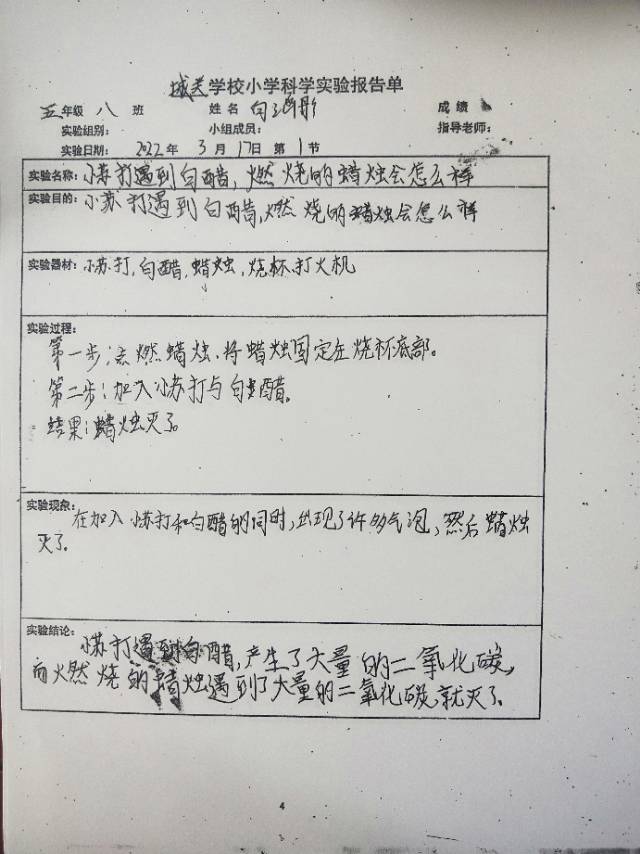 城关学校小学科学实验报告单
五年级 八 班 姓名 白 彤 成绩
实验组别: 小组成员: 指导老师:
实验日期: 2022 年 3 月 17 日 第 1 节
实验名称: 小苏打遇到白醋,燃烧的蜡烛会怎么样
实验目的: 小苏打遇到白醋,燃烧的蜡烛会怎么样
实验器材: 小苏打,白醋,蜡烛,烧杯,打火机
实验过程:
第一步:点燃蜡烛.将蜡烛固定在烧杯底部。
第二步:加入小苏打与白醋。
结果:蜡烛灭了。
实验现象: 在加入小苏打和白醋的同时,出现了许多气泡,然后蜡烛
灭了.
实验结论: 小苏打遇到白醋,产生了大量的二氧化碳,
而火然烧的蜡烛遇到了大量的二氧化碳就灭了.
4